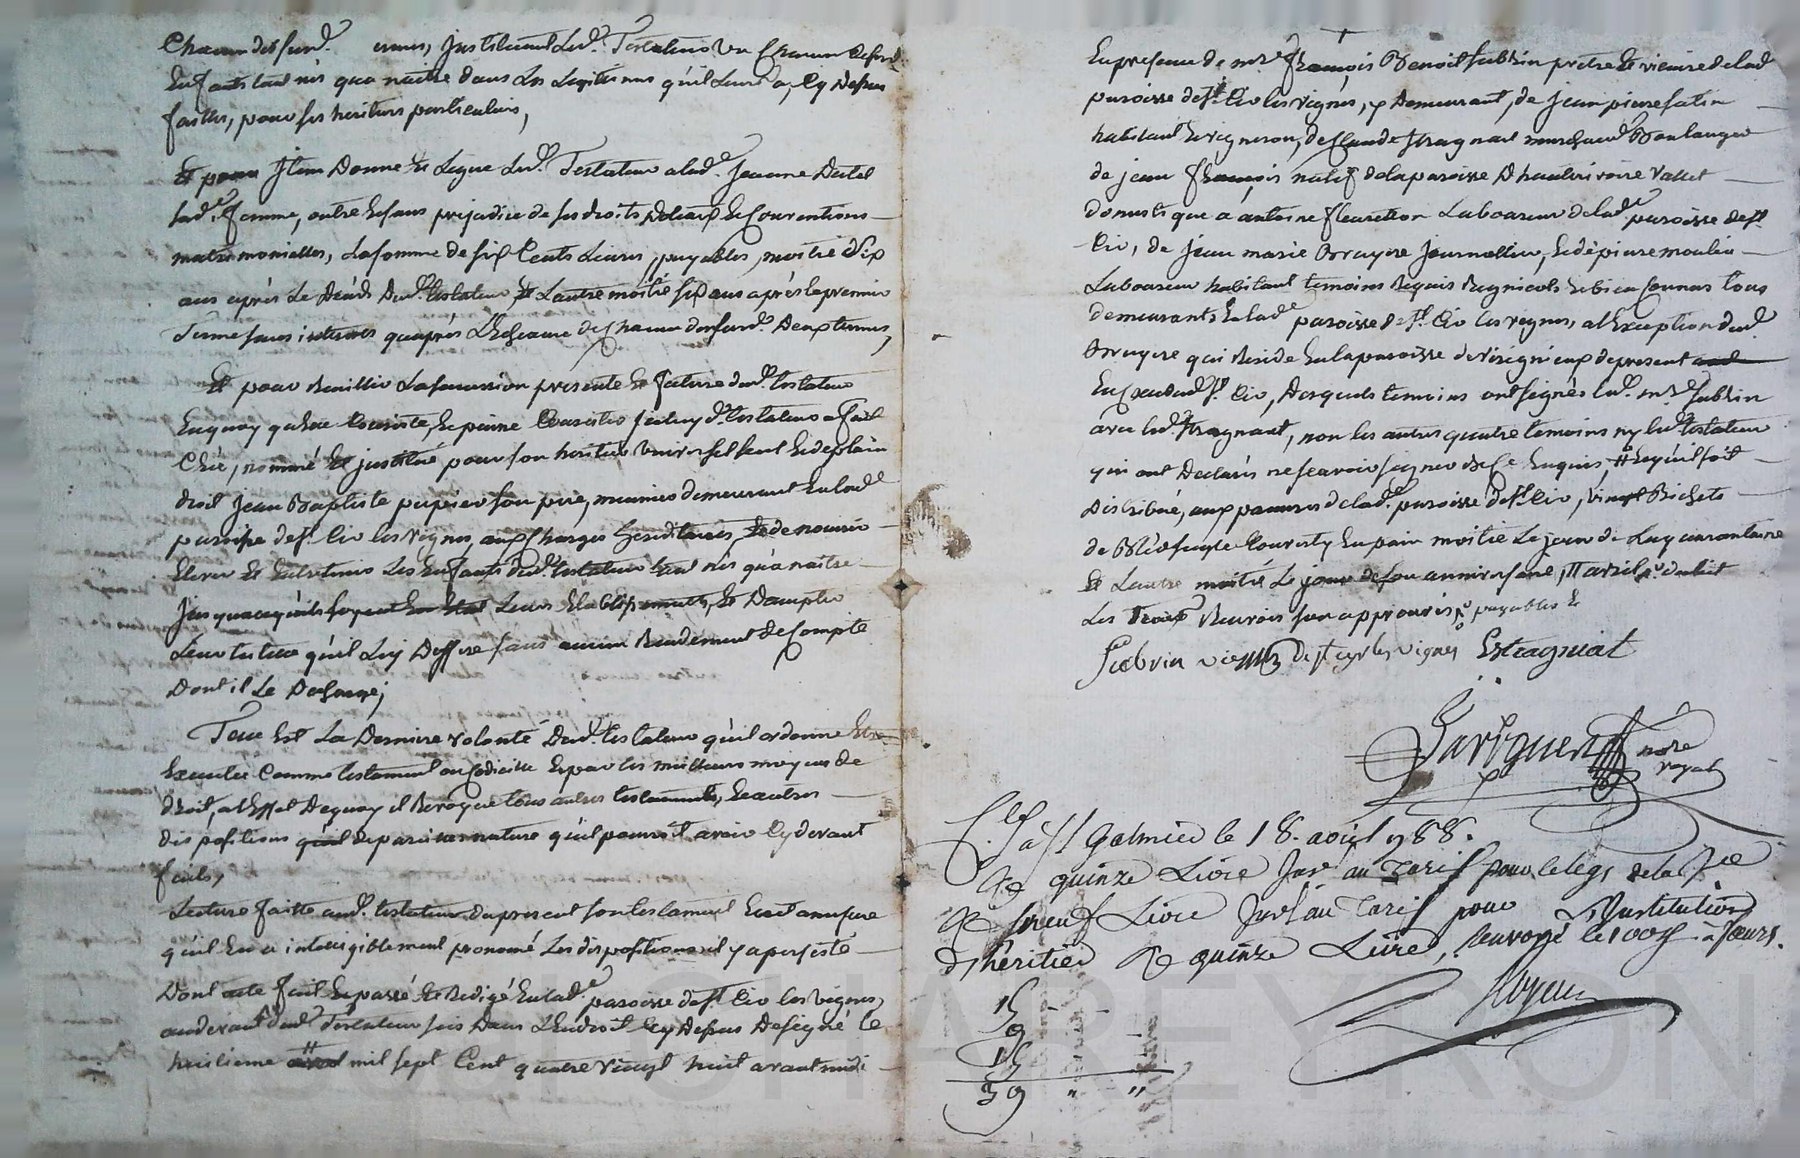 Chacun desfurd. ermes, Justituant Lud. Testateur un Chacun desfurd.
Enfants tant nés qua naitre dans Les Legitimes qu'il Leurs a, Cy Dessus
faittes, pour ses heritiers particuliers,
Et pour Jtem Donne Et Legue Lud. Testateur alad. Jeanne
lad. femme, outre Et sans prejudice de ses droits Dotaux Et Conventions
matrimonialles, La somme de six Cents Livres, payables, moitié dix
ans après Le Décès Dud. testateur Et L'autre moitié six ans après le premier
Terme sans interets qu'après L'Echeance de Chacun desfurd. Deux termes,
Et pour Recuillir La succession presente Et future dud. testateur
Enquoy qu'elle Consiste, Et puisse Consister Jceluy d. testateur a fait
Créé, nommé Et justitué pour son heritier universel seul Et de plain
droit Jean Baptiste pupier son pere, meunier demeurant En lad.
paroisse de St. Cir les vignes, aux Charges hereditaires, Et de nourir
Elever Et Entretenir Les Enfants dud. testateur tant nés qu'a naitre
Jusqua ce qu'ils soyent En Etat Leurs Etablissements, Et D'accepter
Leur tutelle qu'il Luy Deffere sans aucun Rendement de Compte
Dont il Le Decharge,
Telle Est La Derniere volonté Dud. testateur qu'il ordonne Etre
Executée Comme testament ou Codicille Et par les meilleurs moyens de
droit, a L'Effet Dequoy il Revoque tous autres testaments, Et autres
dispositions quil de pareille nature qu'il pourroit avoir Cy devant
faits,
Lecture faitte aud. testateur du present son testament Ecrit a mesure
qu'il En a intelligiblement prononcé Les dispositions il y a persisté
Dont acte fait Et passé Et Redigé En lad. paroisse de St. Cir les vignes,
audevant dud. Testateur sis Dans L'Endroit Cy Dessus Designé le
huitieme avril mil sept Cent quatre vingt huit avant midi
En presence de mre. françois Benoit Sablin pretre Et vicaire de lad.
paroisse de St. Cir les vignes, y Demeurant, de Jean pierre
habitant Et vigneron, de Claude Stragnat marchand Boulanger
de jean françois natif de la paroisse D'hauterivoire Vallet
domestique a antoine fleureton Laboureur de lad. paroisse de St.
Cir, de Jean marie Bruyere Journallier, Et de pierre moulin
Laboureur habitant temoins Requis Regnicols Et bien Connus tous
demeurants En lad. paroisse de St. Cir les vignes, a L'Exception dud.
Bruyere qui Reside En la paroisse de Virignieux de present
aud. St. Cir, Desquels temoins ont signés led. mre. Sablin
avec led. Stragnat, non les autres quatre temoins ny led. testateur
qui ont Declarés ne scavoir signer de Ce Enquis, # Et qu'il soit
Distribué, aux pauvres de lad. paroisse de St. Cir, vingt Bichets
de Bled seigle Convertis En pain moitié Le jour de La quarantaine
Et L'autre moitié Le jour de son anniversaire, # avril
Les Trois Renvois sont approuvés, payables Et
Sablin vicaire de St cyr les vignes Estragnat
notre royal
Clé a St Galmier le 18. août 1788.
R quinze Livre Juv. au Tarif pour le legs de la
R neuf Livre Juvt. au Tarif pour L'Justitution
D'héritier R quinze Livre, renvoyé le 100e
15
9
15
39 " "